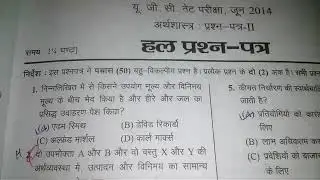 यू. जी. सी. नेट परीक्षा, जून 2014
अर्थशास्त्र : प्रश्न-पत्र-II
समय : 1¼ घण्टा]
हल प्रश्न-पत्र
निर्देश : इस प्रश्नपत्र में पचास (50) बहु-विकल्पीय प्रश्न हैं। प्रत्येक प्रश्न के दो (2) अंक हैं। सभी
1. निम्नलिखित में से किसने उपयोग मूल्य और विनिमय
मूल्य के बीच भेद किया है और हीरे और जल का
प्रसिद्ध उदाहरण पेश किया?
(A) एडम स्मिथ (B) डेविड रिकार्डो
(C) अल्फ्रेड मार्शल (D) कार्ल मार्क्स
दो उपभोक्ता A और B और दो वस्तु X और Y की
अर्थव्यवस्था में, उत्पादन और विनिमय का सामान्य
5. कीमत निर्धारण की
जाती है?
(A) प्रतियोगियों को
लिए
(B) लाभ अधिकतम
(C) प्रवेशियों को बाजार
के लिए